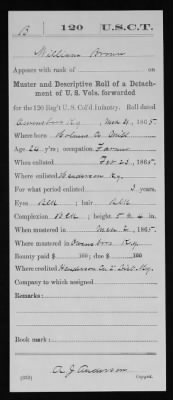 B 120 U.S.C.T.
William Brown
Appears with rank of on
Muster and Descriptive Roll of a Detach-
ment of U. S. Vols. forwarded
for the 120 Reg't U. S. Col'd Infantry. Roll dated
Owensboro Ky, Mch 4, 1865.
Where born Holmes Co
Age 24 y'rs; occupation Farmer
When enlisted Feb 23, 1865.
Where enlisted Henderson, Ky.
For what period enlisted 3 years.
Eyes Blk ; hair Blk
Complexion Blk ; height 5 ft. 4 in.
When mustered in Mch 2, 1865.
Where mustered in Owensboro Ky
Bounty paid $ 100; due $ 100
Where credited Henderson Co. Ky.
Company to which assigned
Remarks:
Book mark:
A J Anderson
Copyist.